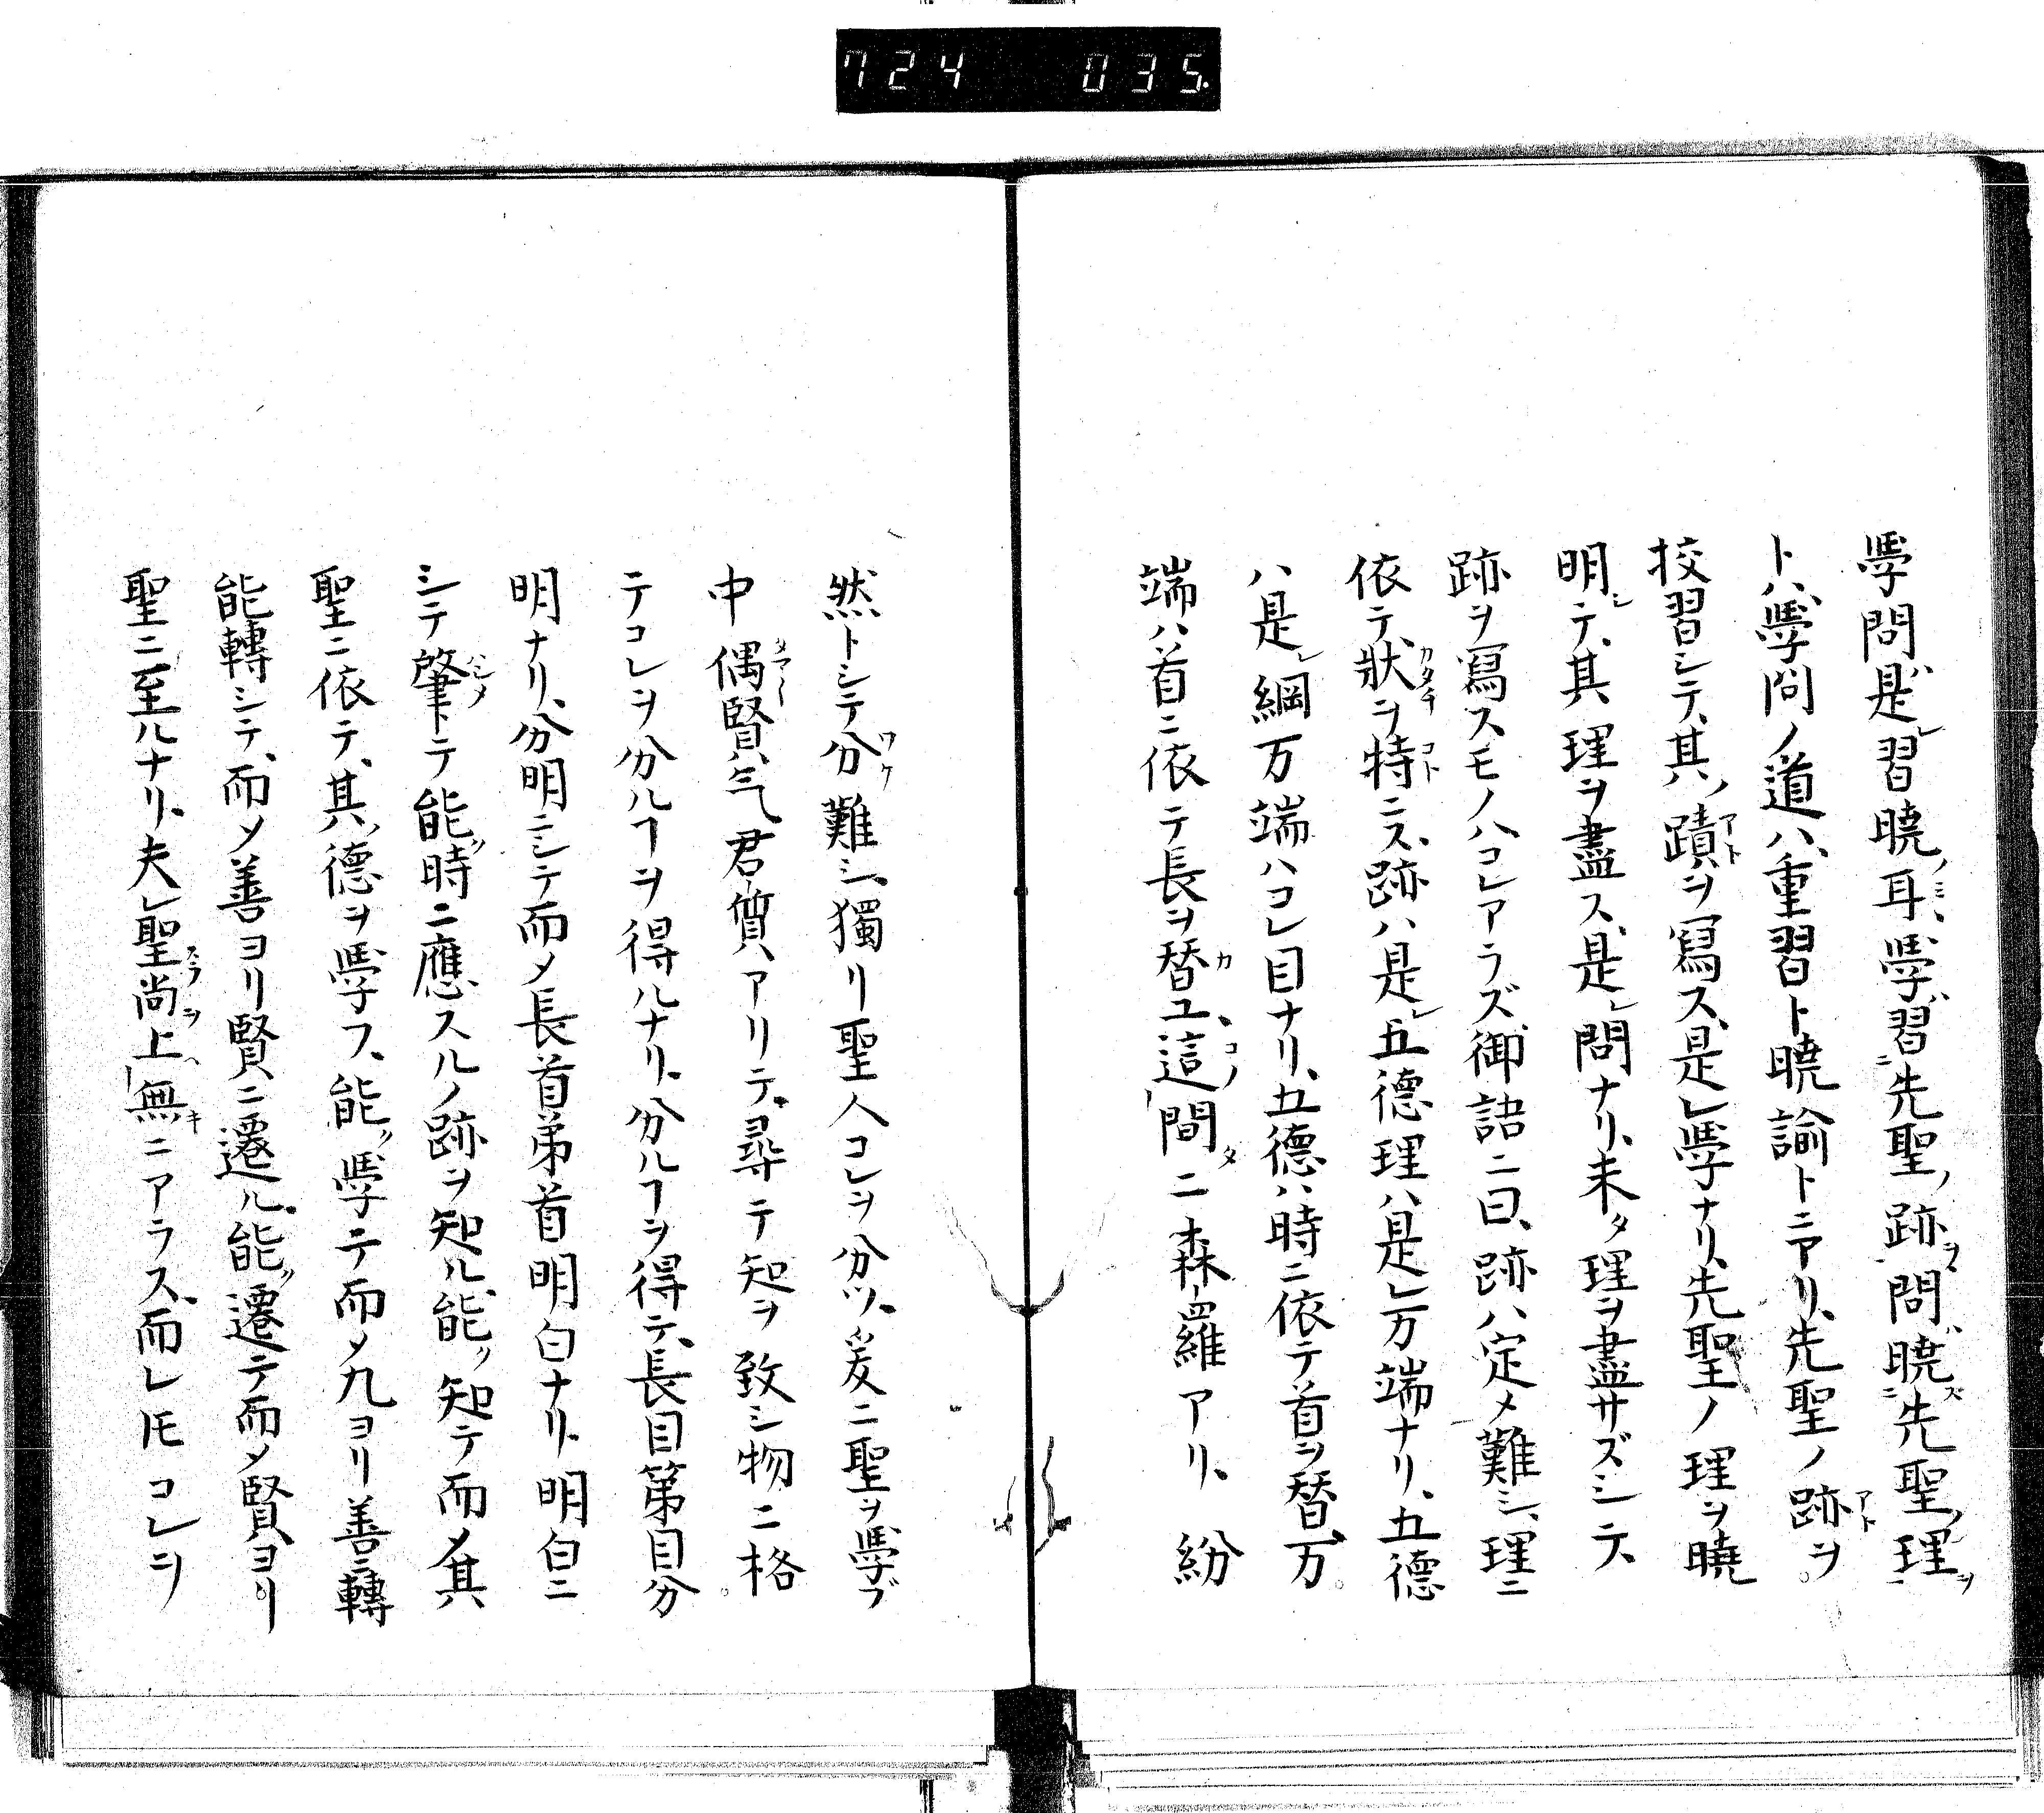 724 035.
學問是習曉耳、學習先聖跡、問曉先聖理
トハ、學問ノ道ハ、重習ト曉諭トニアリ、先聖ノ跡ヲ
挍習シテ、其ノ蹟ヲ寫ス、是レ學ナリ、先聖ノ理ヲ曉
明シテ、其理ヲ盡ス、是レ問ナリ、未タ理ヲ盡サズシテ、
跡ヲ寫スモノハコレアラズ、御語ニ曰、跡ハ定メ難シ、理ニ
依テ、狀ヲ特ニス、跡ハ是レ五德理ハ是レ万端ナリ、五德
ハ是レ綱万端ハコレ目ナリ、五德ハ時ニ依テ首ヲ替、万
端ハ首ニ依テ長ヲ替ユ、這間ニ森羅アリ、紛
然トシテ分難シ、獨リ聖人コレヲ分ツ、爰ニ聖ヲ學ブ
中偶賢气君質アリテ、尋テ知ヲ致シ物ニ格
テコレヲ分ルヿヲ得ルナリ、分ルヿヲ得テ、長目第目分
明ナリ、分明ニシテ而メ長首第首明白ナリ、明白ニ
シテ肇トテ能ク時ニ應スルノ跡ヲ知ル、能ク知テ而メ其
聖ニ依テ、其ノ德ヲ學フ、能ク學テ而メ九ヨリ善ニ轉
能轉シテ、而メ善ヨリ賢ニ遷ル、能ク遷テ而メ賢ヨリ
聖ニ至ルナリ、夫レ聖尚上無ニアラス、而レ𪜈コレヲ